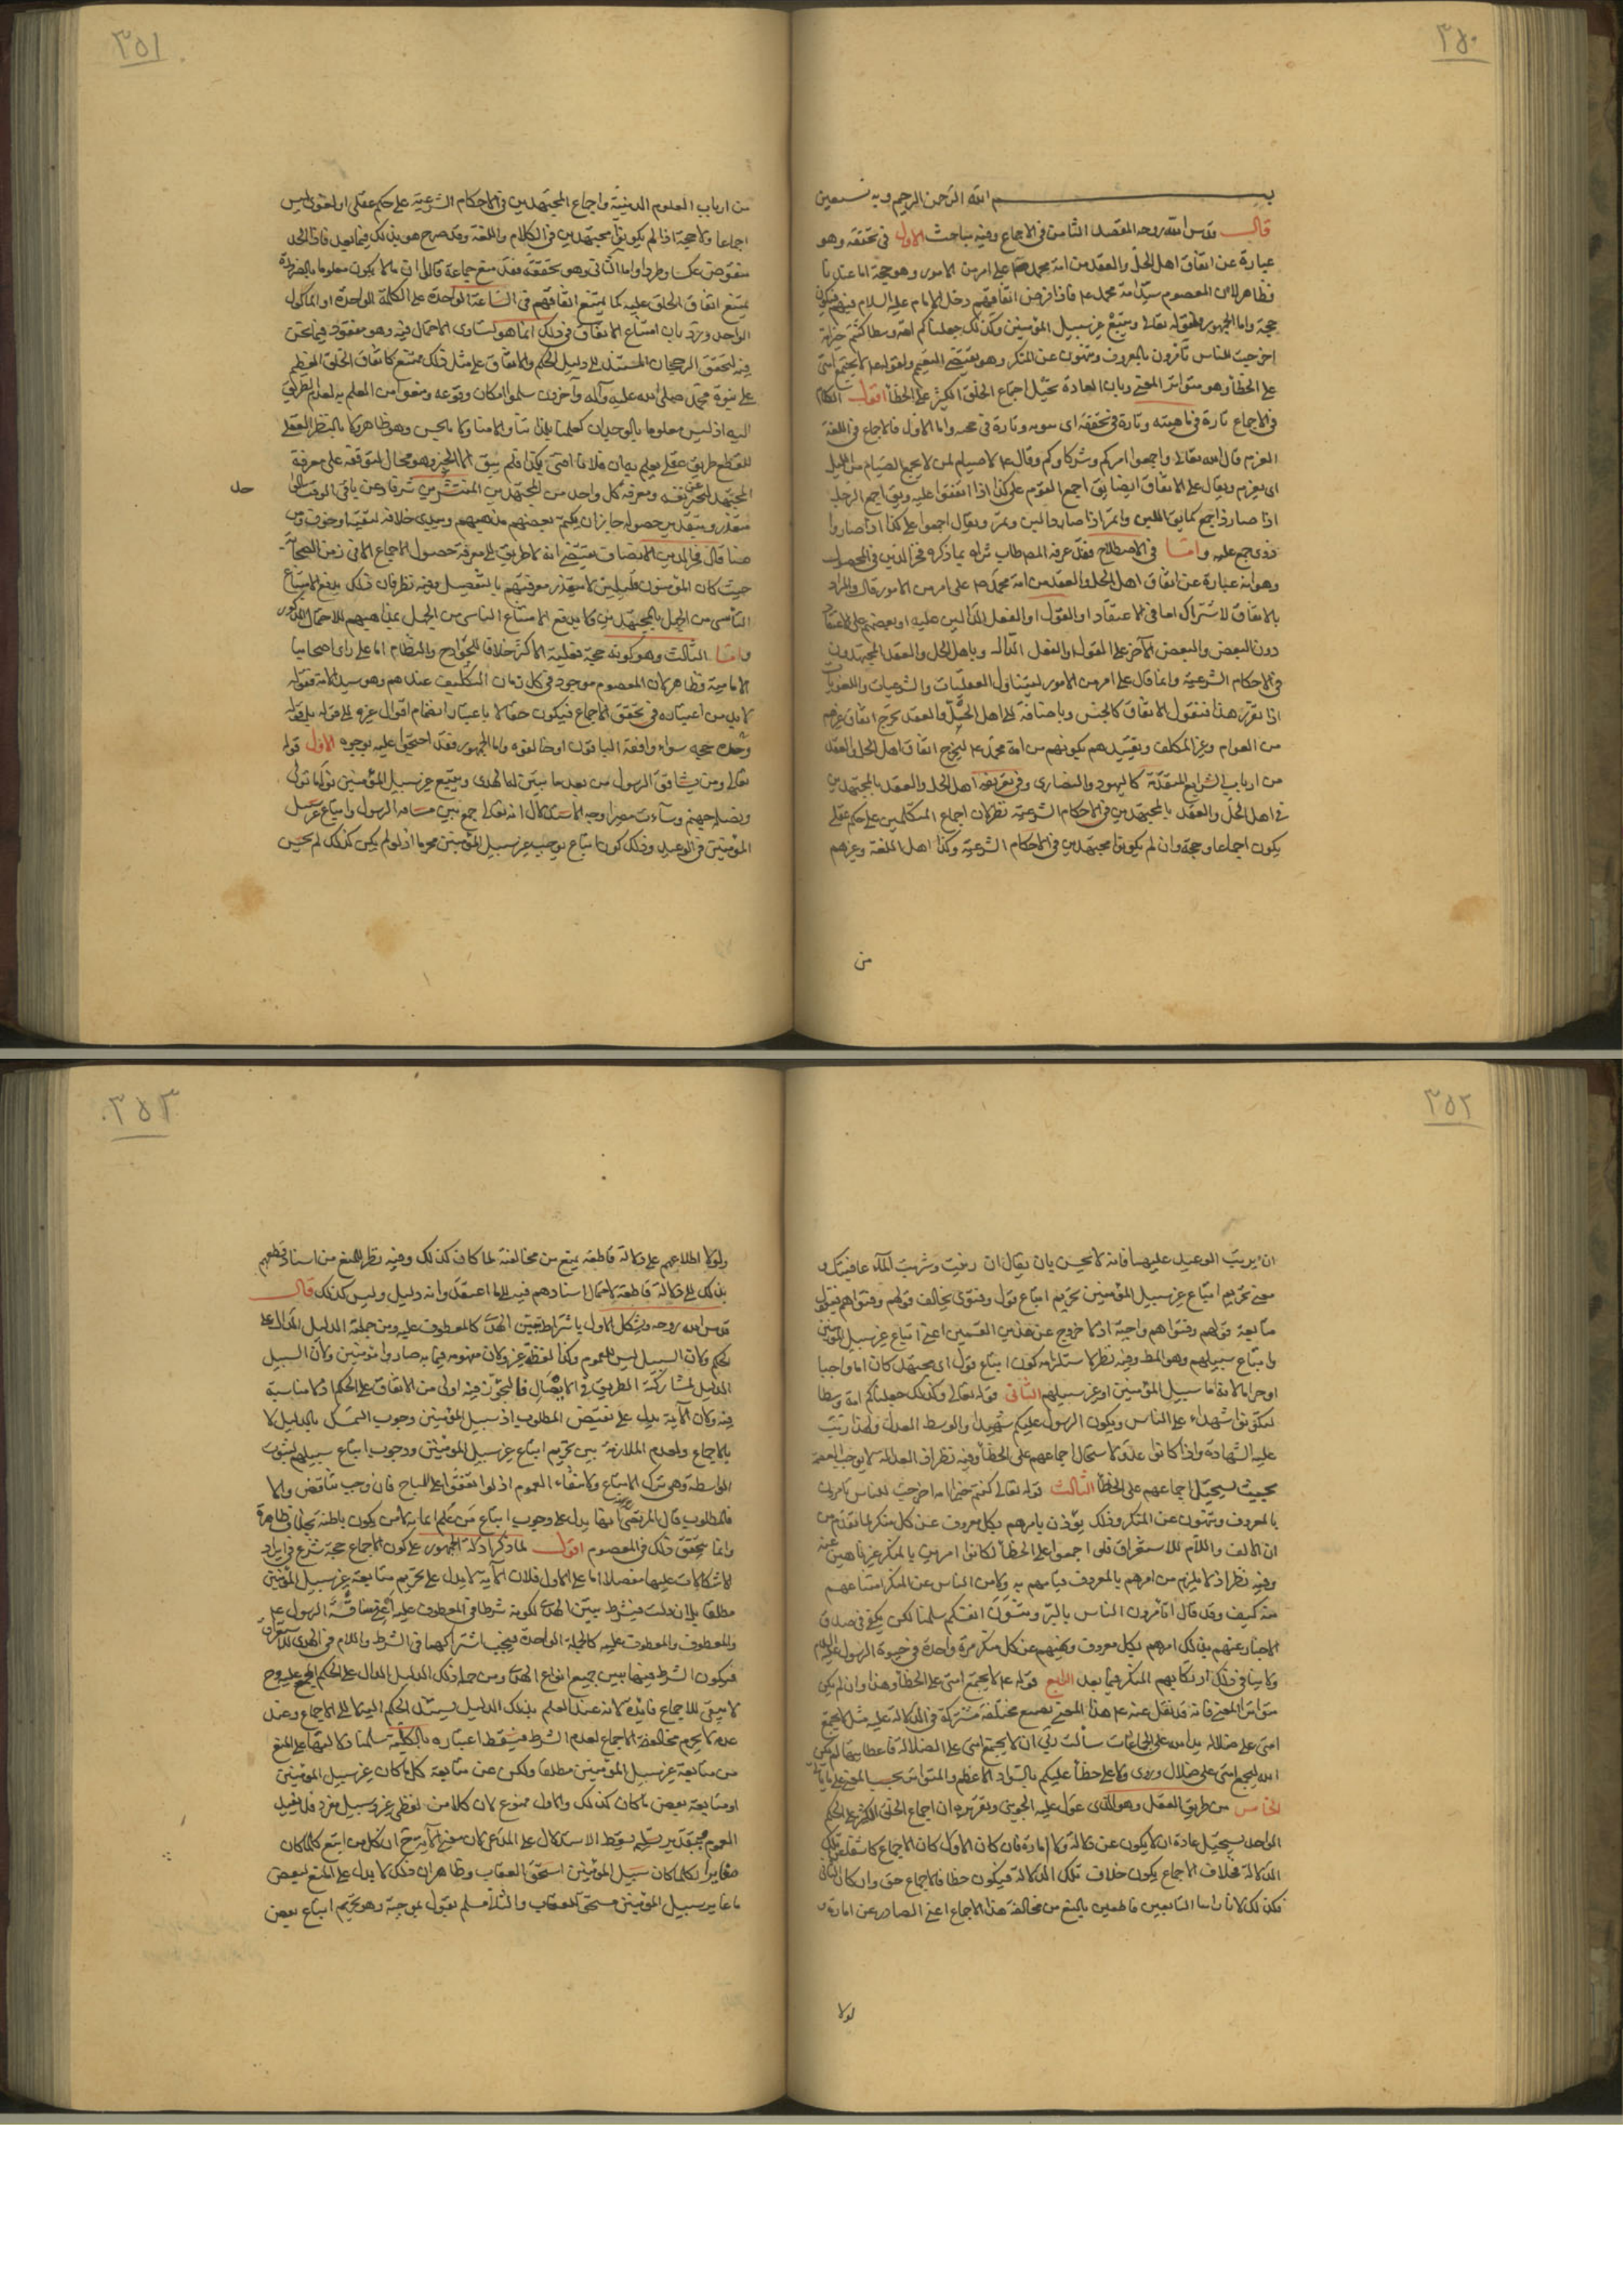 ٣٥٠
بسم الله الرحمن الرحيم وبه نستعين
قال قدس الله روحه المقصد الثامن في الاجماع وفيه مباحث الاول في تحققه وهو
عبارة عن اتفاق اهل الحل والعقد من امة محمد ص على امر من الامور وهو حجة اما عندنا
فظاهر لان المعصوم سيد امة محمد ع فاذا فرض اتفاقهم دخل الامام عليه السلام فيهم فيكون
حجة واما الجمهور فلقوله تعالى ويتبع غير سبيل المؤمنين وكذلك جعلناكم امة وسطا كنتم خير امة
اخرجت للناس تأمرون بالمعروف وتنهون عن المنكر وهو يقتضي التعميم ولقوله ع لا يجتمع امتي
على الخطأ وهو متواتر المعنى ولان العادة تحيل اجماع الخلق الكثير على الخطأ اقول الكلام
في الاجماع تارة في ماهيته وتارة في تحققه اى ثبوته وتارة في حجيته واما الاول فالاجماع في اللغة
العزم قال الله تعالى واجمعوا امركم وشركاؤكم وقال ع لا صيام لمن لا يجمع الصيام من الليل
اى يعزم ويقال على الاتفاق ايضا يق اجمع القوم على كذا اذا اتفقوا عليه ويق اجمع الرجل
اذا صار ذا جمع كما يق البن واتمر اذا صار ذا لبن وتمر ويقال اجمعوا على كذا اى صاروا
ذوى جمع عليه واما في الاصطلاح فقد عرفه المصـ طاب ثراه بما ذكره فخر الدين في المحصول
وهو انه عبارة عن اتفاق اهل الحل والعقد من امة محمد ص على امر من الامور قال والمراد
بالاتفاق الاشتراك اما في الاعتقاد او القول او الفعل الدالين عليه او بعضهم على الاعتقاد
دون البعض والبعض الآخر على القول او الفعل الدال وباهل الحل والعقد المجتهدون
في الاحكام الشرعية وانما قال على امر من الامور ليتناول العقليات والشرعيات واللغويات
اذا تقرر هذا فنقول الاتفاق كالجنس وباضافته الى اهل الحل والعقد تخرج اتفاق غيرهم
من العوام وغير المكلف وتقييدهم بكونهم من امة محمد ع ليخرج اتفاق اهل الحل والعقد
من ارباب الشرايع المتقدمة كاليهود والنصارى وفي تعريفه اهل الحل والعقد بالمجتهدين
في اهل الحل والعقد بالمجتهدين في الاحكام الشرعية نظر لان اجماع المتكلمين على حكم عقلي
يكون اجماعا وحجة وان لم يكونوا مجتهدين في الاحكام الشرعية وكذا اهل اللغة وغيرهم
من
٣٥١
من ارباب العلوم الدينية واجماع المجتهدين في الاحكام الشرعية على حكم عقلي او لغوى ليس
اجماعا ولا حجة اذا لم يكونوا مجتهدين في الكلام واللغة وقد صرح هو بذلك فيما بعد فاذا الحد
منقوض عكسا وطردا واما الثاني وهو تحققه فقد منع جماعة قالوا ان ما لا يكون معلوما بالضرورة
يمتنع اتفاق الخلق عليه كما يمتنع اتفاقهم في الساعة الواحدة على الكلمة الواحدة او المأكول
الواحد ورد بان امتناع الاتفاق في ذلك انما هو لتساوى الاحتمال فيه وهو مفقود فيما نحن
فيه لتحقق الرجحان المستند الى دليل الحكم والاتفاق على مثل ذلك ممتنع كاتفاق الخلق العظيم
على نبوة محمد صلى الله عليه وآله وآخرون سلموا امكان وقوعه ومنعوا من العلم به لعدم الطريق
اليه اذ ليس معلوما بالوجدان كعلمنا بلذاتنا والامنا ولا بالحس وهو ظاهر ولا بالنظر العقلي
للقطع طريق عقلي يعلم به ان فلانا افتى بكذا فلم يبق الا الخبر وهو محال لتوقفه على معرفة
المجتهد المخبر عن نفسه ومعرفة كل واحد من المجتهدين المنتشرين شرقا وغربا في الوقت الواحد
متعذر وبتقدير حصوله جاز ان يكتم بعضهم مذهبهم ويبدى خلافه لتقية او خوف ومن
هنا قال فخر الدين الانصاف يقتضي انه لا طريق الى معرفة حصول الاجماع الا في زمن الصحابة
حيث كان المؤمنون قليلين لا يتعذر معرفتهم بالتفصيل وفيه نظر فان ذلك يدفع الامتناع
الناشى من الجهل بالمجتهدين ولا يدفع الامتناع الناشى من الجهل بمذاهبهم للاحتمال المذكور
واما الثالث وهو كونه حجة فعليه الاكثر خلافا للخوارج والنظام اما على راى اصحابنا
الامامية فظاهر لان المعصوم موجود في كل زمان التكليف عندهم وهو سيد الامة فقوله
لابد من اعتباره في تحقق الاجماع فيكون حقا لا باعتبار انضمام اقوال غيره الى قوله بل قوله
وحده حجة سواء وافقه الباقون او خالفوه واما الجمهور فقد احتجوا عليه بوجوه الاول قوله
تعالى ومن يشاقق الرسول من بعد ما تبين له الهدى ويتبع غير سبيل المؤمنين نوله ما تولى
ونصله جهنم وساءت مصيرا وجه الاستدلال انه تعالى جمع بين مشاقة الرسول واتباع غير سبيل
المؤمنين في الوعيد وذلك كون اتباع يوجب غير سبيل المؤمنين محرما اذ لو لم يكن كذلك لم يحسن
٣٥٢
ان يرتب الوعيد عليهما فانه لا يحسن بان يقال ان زنيت وشربت الماء عاقبتك و
معنى تحريم اتباع غير سبيل المؤمنين تحريم اتباع قول وفتوى يخالف قولهم وفتواهم فيكون
متابعة قولهم وفتواهم واجبة اذ لا خروج عن هذين القسمين اعنى اتباع غير سبيل المؤمنين
واتباع سبيلهم وهو المط وفيه نظر لاستلزامه كون اتباع قول اى مجتهد كان اما واجبا
او حراما لانه اما سبيل المؤمنين او غير سبيلهم الثاني قوله تعالى وكذلك جعلناكم امة وسطا
لتكونوا شهداء على الناس ويكون الرسول عليكم شهيدا والوسط العدل ولهذا رتب
عليه الشهادة واذا كانوا عدولا استحال اجماعهم على الخطأ وفيه نظر اذ العدالة لا يوجب العصمة
بحيث يستحيل اجماعهم على الخطأ الثالث قوله تعالى كنتم خير امة اخرجت للناس تأمرون
بالمعروف وتنهون عن المنكر وذلك يؤذن بامرهم بكل معروف عن كل منكر لما تقدم من
ان الالف واللام للاستغراق فلو اجمعوا على الخطأ لكانوا امرين بالمنكر غير ناهين عنه
وفيه نظر اذ لا يلزم من امرهم بالمعروف قيامهم به ولا من الناس عن المنكر امتناعهم
منه كيف وقد قال اتأمرون الناس بالبر وتنسون انفسكم سلمنا لكن يكفي في صدق
الاخبار عنهم بذلك امرهم بكل معروف ونهيهم عن كل منكر مرة واحدة في حيوة الرسول عليه السلم
ولا ينافي ذلك ارتكابهم المنكر فيما بعد الرابع قوله ع لا يجتمع امتى على الخطأ وهذا وان لم يكن
متواتر المعنى فانه قد نقل عنه ع هذا المعنى بصيغ مختلفة مشتركة في الدلالة عليه مثل لا يجتمع
امتى على ضلالة يد الله على الجماعات سألت ربى ان لا يجتمع امتى على الضلالة فاعطانيها لم يكن
الله ليجمع امتى على ضلال وروى ولا على خطأ عليكم بالسواد الاعظم والمتواتر بحسب المعنى على ما يأتى
الخامس من طريق العقل وهو الذى عول عليه الجوينى وتقريره ان اجماع الخلق الكثير على الحكم
الواحد يستحيل عادة ان لا يكون عن دلالة ولا امارة فان كان الاول كان الاجماع كاشفا عن تلك
الدلالة فخلاف الاجماع يكون خلاف تلك الدلالة فيكون خطا فالاجماع حق وان كان الثانى
فكذلك لانا راينا التابعين قاطعين بالمنع من مخالفة هذا الاجماع اعنى الصادر عن امارة و
لولا
٣٥٣
ولولا اطلاعهم على دلالة قاطعة يمنع من مخالفته لما كان كذلك وفيه نظر للمنع من اسناد قطعهم
بذلك الى دلالة قاطعة لاحتمال اسنادهم فيه الى ما اعتقد وانه دليل وليس كذلك قال
قدس الله روحه ويشكل الاول باشتراط تبين الهدى كالمعطوف عليه ومن جملة الدليل الدال على
الحكم ولان السبيل ليس للعموم وكذا لفظة غير ولان مفهومه فيما به صاروا مؤمنين ولان السبيل
الدليل لمشاركته الطريق في الايصال فالتجوز فيه اولى من الاتفاق على الحكم اذ لا مناسبة
فيه ولان الآية يدل على نقيض المطلوب اذ سبيل المؤمنين وجوب التمسك بالدليل لا
بالاجماع ولعدم الملازمة بين تحريم اتباع غير سبيل المؤمنين ووجوب اتباع سبيلهم لثبوت
الواسطة وهى ترك الاتباع ولانتفاء العموم اذ لو اتفقوا على المباح فان وجب تناقض والا
فالمطلوب قال المرتضى انها يدل على وجوب اتباع من علم ايمانه لا من يكون باطنه بخلاف ظاهره
وانما يتحقق ذلك في المعصوم اقول لما ذكر ادلة الجمهور على كون الاجماع حجة شرع في ايراد
الاشكالات عليها مفصلا اما على الاول فلان الآية لا يدل على تحريم متابعة غير سبيل المؤمنين
مطلقا بل ان ذلك بشرط تبين الهدى لكونه شرطا في المعطوف عليه اعنى مشاقة الرسول ع
والمعطوف والمعطوف عليه كالجملة الواحدة فيجب اشتراكهما في الشرط واللام في الهدى للاستغراق
فيكون الشرط فيهما تبين جميع انواع الهدى ومن جملة ذلك الدليل الدال على الحكم المجمع عليه وح
لا يبقى للاجماع فايدة لانه عند العلم بذلك الدليل يستند الحكم اليه لا الى الاجماع وعند
عدمه لا يحرم مخالفة الاجماع لعدم الشرط فيسقط اعتباره بالكلية سلمنا دلالتها على المنع
من متابعة غير سبيل المؤمنين مطلقا ولكن عن متابعة كل ما كان غير سبيل المؤمنين
او متابعة بعض ما كان كذلك والاول ممنوع لان كلا من لفظى غير وسبيل مفرد فلا يفيد
العموم وبتقدير تسليمه يسقط الاستدلال على المدعى لان معنى الآية ح ان كل من اتبع كلما كان
مغايرا لكلما كان سبيل المؤمنين استحق العقاب وظاهر ان ذلك لا يدل على المنع لبعض
ما غاير سبيل المؤمنين مستحق للعقاب والثانى مسلم نقول بموجبه وهو تحريم اتباع بعض